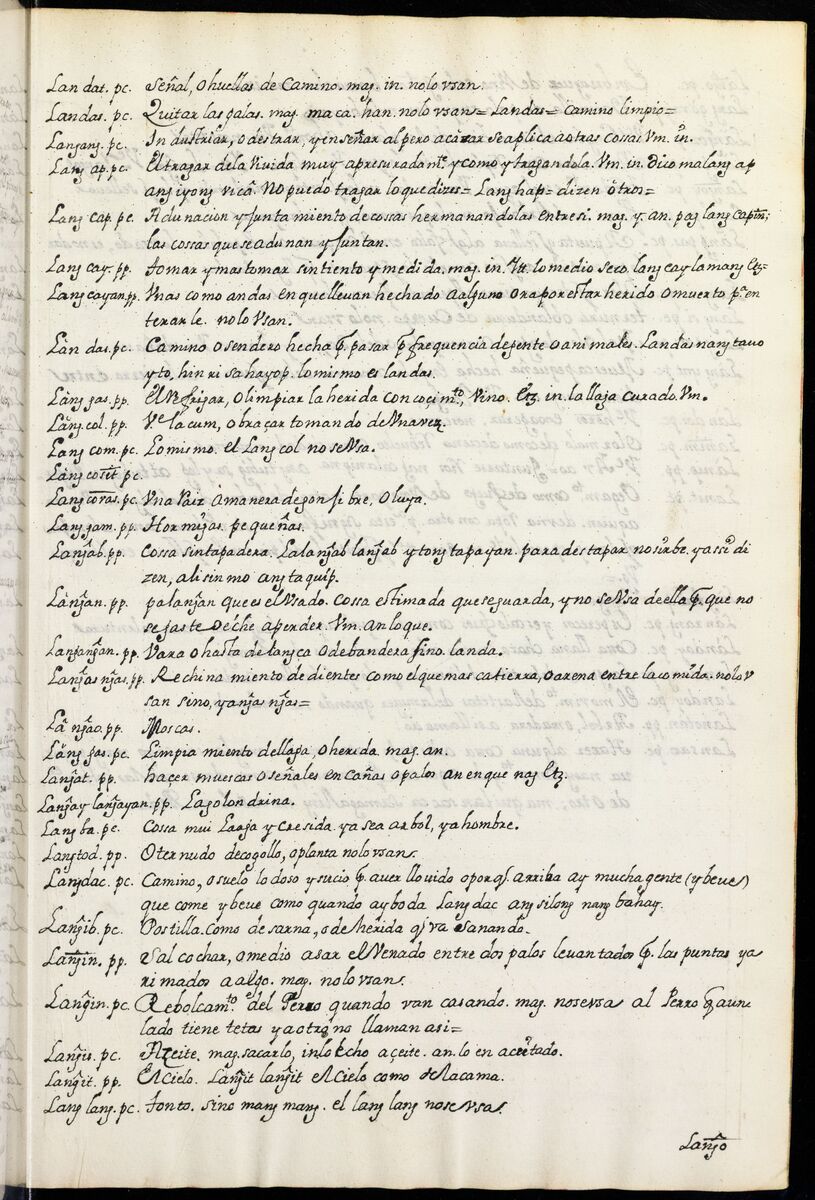 Lan dat. pc. Señal, o huellas de Camino. mag. in. nolo vsan.
Landas. pc. Quitar las galas. mag. maca. han. nolo vsan= Landas= camino limpio=
Langang. pc. Industriar, o destrar, y inseñar al pero acàzar se aplica a otras cossas Vm. in.
Lang ap. pc. El tragar dela Viuida muy apresuradamte. y como ytragandola. Vm. in. Dico malang ap
ang iyong vicã. No puedo tragar lo que dizes= Lang hap= dizen ôtros=
Lang cap. pc. Adunacion y Junta miento de cossas hermanandolas entre si. mag. y. an. pag lang capin;
las cossas que se adunan y Juntan.
Lang cay. pp. tomar y mas tomar sin tiento y medida. mag. in. lo medio seco. lang cay lamang Etz=
Lang cayan. pp. Vnas como andas en que lleuan hechado a alguno ora por estar herido o muerto pa. en
terarle. nolo Vsan.
Làn das. pc. Camino o sendero hecha p. pasar p. frequencia de gente o animales. Landas nang tauo
yto, hin ri sa hayop. lo mismo es landas.
Làng gas. pp. El Refrigar, o limpiar la herida con coçimto., Vino. Etz. in. la llaga curado. Vm.
Lãng col. pp. Ve. lacum, o braçar tomando de Vna vez.
Lang com. pc. Lo mismo. el Lang col no se Vsa.
Làng cosit pc.
Lang coras. pc. Vna Raiz a manera de gon si bre, o luya.
Lang gam. pp. Hormigas. pequeñas.
Lang̃ab. pp. Cossa sin tapadera. Lalang̃ab lang̃ab y tong tapayan. para des tapar no sirbe. y assi di
zen, alisin mo ang taquip.
Làng̃an. pp. palang̃an que es el Vsado. Cossa estimada que se guarda, y no se Vsa de ella p. que no
se gaste o eche a perder. Vm. an lo que.
Langang̃an. pp. Vara o hasta de lança o de bandera fino. landa.
Lang̃as ng̃as. pp. Rechina miento de dientes como el que mas ca tierra, o arena entre la comida. nolo v
san sino, yang̃as ng̃as=
Lã ng̃ao. pp. Moscas.
Lãng gas. pc. Limpia miento de llaga, o herida. mag. an.
Lang̃at. pp. haçer muescas o señales en cañas o palos an en que nag Etz.
Lang̃ay lang̃ayan. pp. La golondrina.
Lang ba. pc. Cossa mui Larga y cresida. ya sea arbol, ya hombre.
Langtod. pp. O ternudo de cogollo, o planta nolo vsan.
Langdac. pc. Camino, o suelo lodoso y sucio p. auer llouido o por q. arriba ay mucha gente (y beue)
que come y beue como quando ay boda. Langdac ang silong nang bahay.
Lang̃ib. pc. Postilla. como de sarna, o de herida q. va sanando.
Lang̃in. pp. Salcochar, o medio asar el Venado entre dos palos leuantados p. las puntas ya
rimados a algo. mag. nolo Vsan.
Lang̃in. pc. Rebolcamto. del Perro quando van casando. mag. no se vsa al Perro q aun
lado tiene tetas y a otro no llaman asi=
Lang̃is. pc. Azeite. mag. sacarlo, in. lo hecho açeite. an. lo en aceitado.
Lang̃it. pp. El Cielo. Lang̃it lang̃it el Cielo como de la cama.
Lang lang. pc. tonto. sino mang mang. el lang lang no se vsa.
Lang̃o